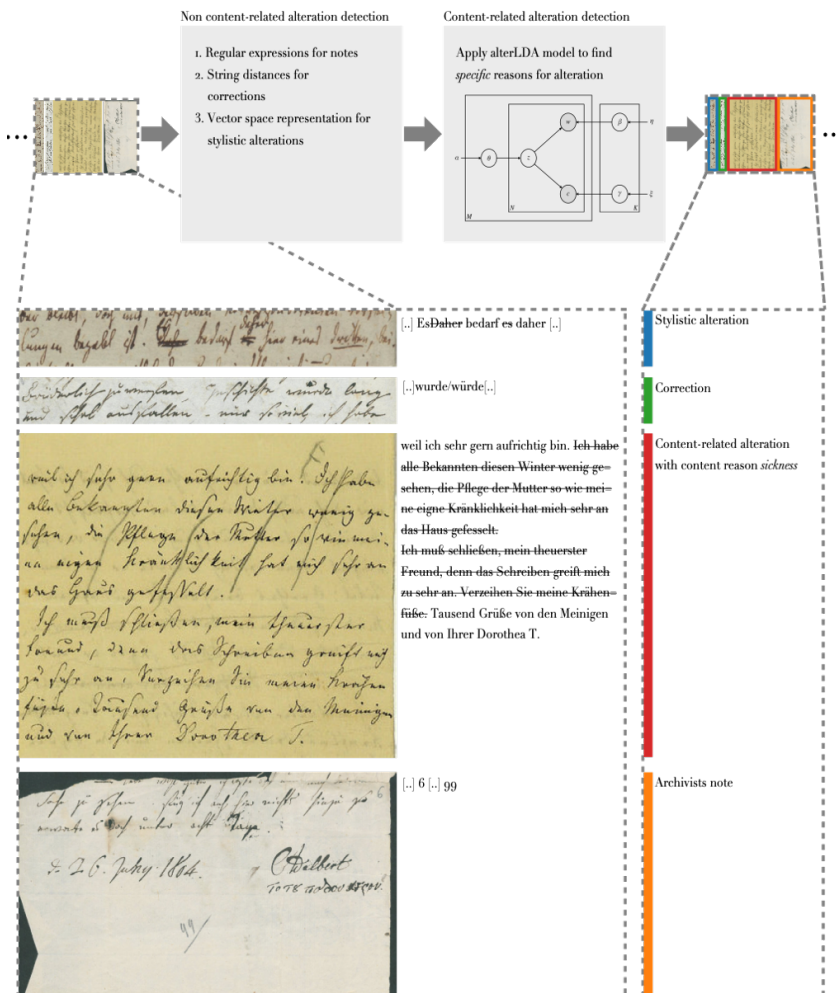 Non content-related alteration detection
1. Regular expressions for notes
2. String distances for
corrections
3. Vector space representation for
stylistic alterations
Content-related alteration detection
Apply alterLDA model to find
specific reasons for alteration
α
θ
z
w
c
β
γ
η
ξ
N
M
K
[..] EsDaher bedarf es daher [..]
Stylistic alteration
[..]wurde/würde[..]
Correction
weil ich sehr gern aufrichtig bin. Ich habe
alle Bekannten diesen Winter wenig ge=
sehen, die Pflege der Mutter so wie mei=
ne eigne Kränklichkeit hat mich sehr an
das Haus gefesselt.
Ich muß schließen, mein theuerster
Freund, denn das Schreiben greift mich
zu sehr an. Verzeihen Sie meine Krähen=
füße. Tausend Grüße von den Meinigen
und von Ihrer Dorothea T.
Content-related alteration
with content reason sickness
weil ich sehr gern aufrichtig bin. Ich habe
alle Bekannten diesen Winter wenig ge=
sehen, die Pflege der Mutter so wie mei=
ne eigne Kränklichkeit hat mich sehr an
das Haus gefesselt.
Ich muß schließen, mein theuerster
Freund, denn das Schreiben greift mich
zu sehr an. Verzeihen Sie meine Krähen
füße. Tausend Grüße von den Meinigen
und von Ihrer Dorothea T.
[..] 6 [..] 99
Archivists note
6
99/